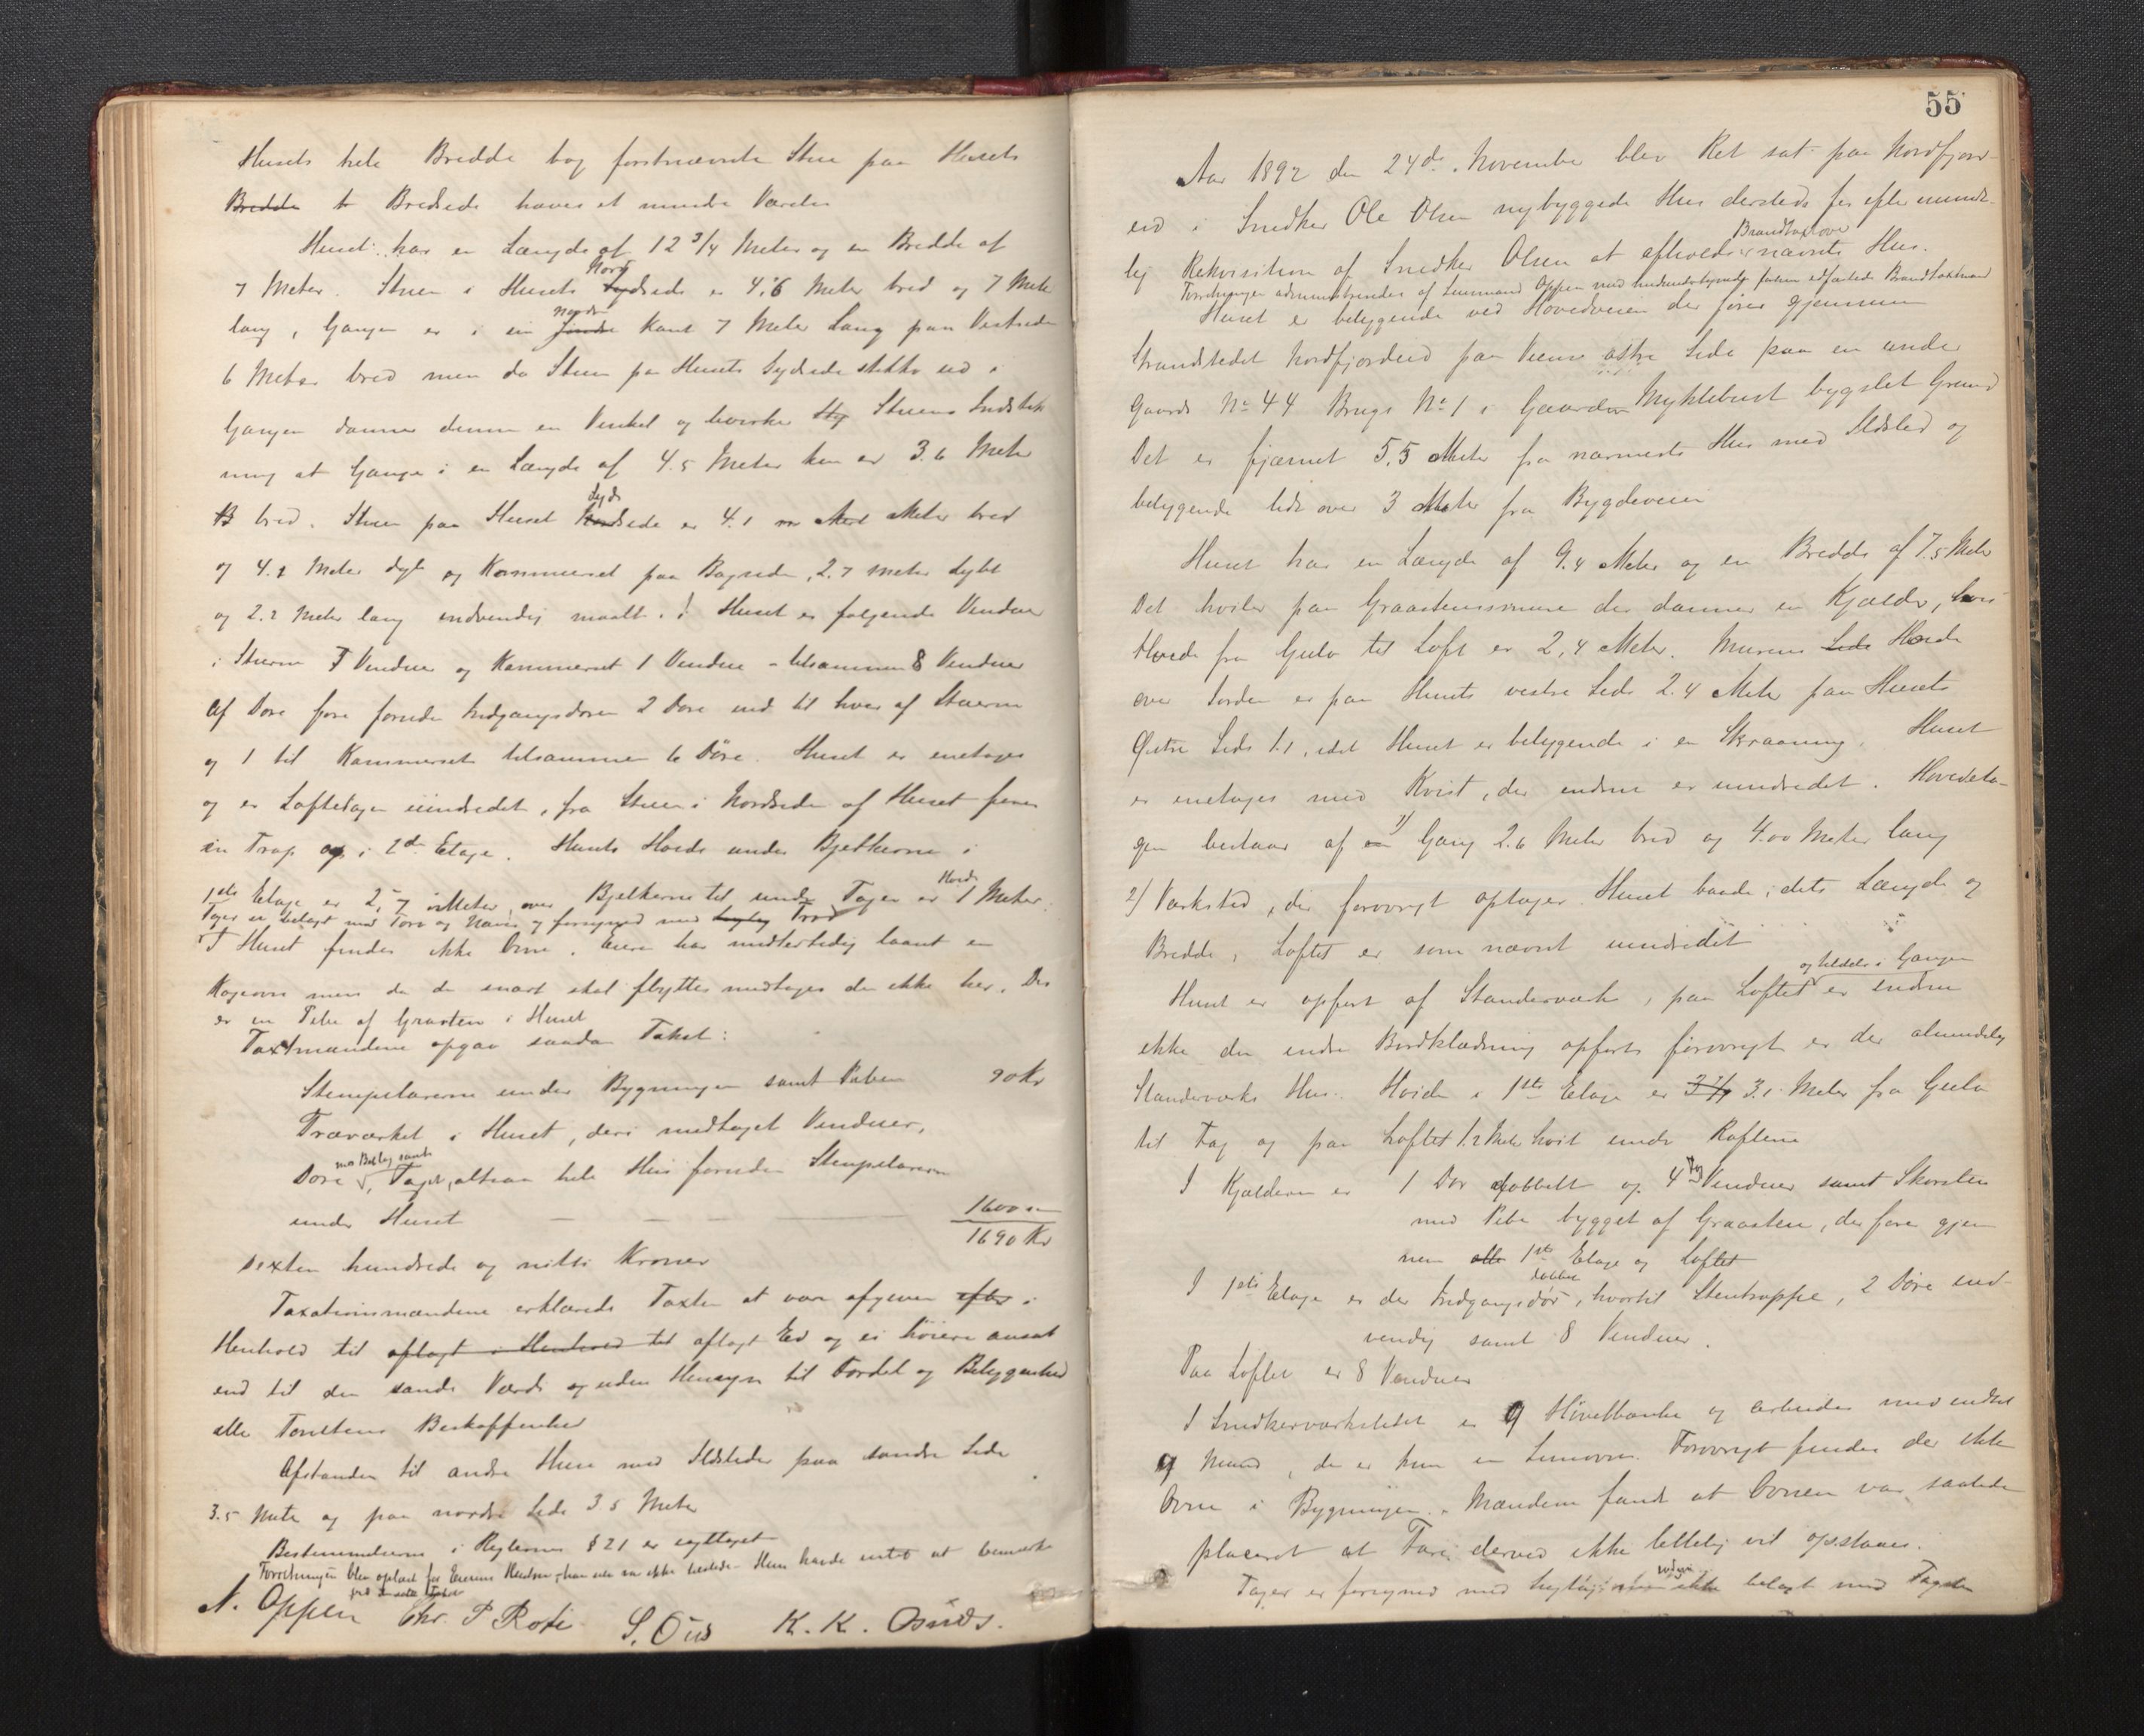 Husets hele Bredde bag forstnævnte Stue paa Husets
Bredde Bredside haves et mindre Værelse
Huset har en Længde af 12 3/4 Meter og en Bredde af
7 Meter. Stuen i Husets Nordside er 4.6 Meter bred og 7 Meter
lang, Gangen er i sin nordre Kant 7 Meter Lang paa Vestsiden
6 Meter bred men da Stuen paa Husets Sydside stikker ud i
Gangen danner denne en Vinkel og bevirker Stuens Indstik
ning at Gangen i en Længde af 4.5 Meter kun er 3.6 Meter
bred. Stuen paa Huset Sydside er 4.1 Meter bred
og 4.1 Meter dyb og Kammerset paa Bagsiden 2.7 meter dybt
og 2.2 Meter lang indvendig maalt. I Huset er følgende Vinduer
i Stuerne 7 Vinduer og Kammerset 1 Vindue - tilsammen 8 Vinduer
Af Døre fore foruden Indgangsdøren 2 Døre ind til hver af Stuerne
og 1 til Kammerset tilsammen 6 Døre. Huset er enetages
og er Loftetagen uindredet, fra Stuen i Nordsiden af Huset fører
en Trap op i 2den Etage. Husets Høide under Bjelkerne i
1ste Etage er 2,7 Meter, over Bjelkerne til under Taget er Høide 1 Meter.
Taget er belagt med Torv og Næver og forsynet med Tro
I Huset findes ikke Ovne. Eieren har midlertidig laant en
Kogeovn men da de snart skal flyttes medtages den ikke her. Der
er en Pibe af Graasten i Huset
Taxtmændene opgav saadan Takst:
Stenpilarerne under Bygningen samt Piben 90 Kr
Træværket i Huset, deri medtaget Vinduer,
Døre med Beslag samt Taget, altsaa hele Hus foruden Stenpilarerne
under Huset — — — 1600 "
1690 Kr
Sexten hundrede og nitti Kroner
Taxationsmændene erklærede Taxten at være afgiven efter i
Henhold til aflagt i Henhold til aflagt Ed og ei høiere ansat
end til den sande Værdi og uden Hensyn til Fordel og Beliggenhed
eller Tomtens Beskaffenhed
Afstanden til andre Huse med Ildsteder paa søndre Side
3.5 Meter og paa nordre Side 3 5 Meter
Bestemmelserne i Reglernes § 21 er iagttaget
Forretningen blev oplæst for Eierens Hustru, han selv var ikke tilstede. Hun havde intet at bemærke
N. Oppen Chr. P Roti S. Ous K. K. Osnes.
55
Aar 1892 den 24de November blev Ret sat paa Nordfjord-
eid i Snedker Ole Olsen nybyggede Hus dersteds for efter mundt-
lig Rekvisition af Snedker Olsen at afholde Brandtaxt over nævnte Hus.
Forretningen administreredes af Lensmand Oppen med undertegnede forhen edfæstede Brandtaxtmænd
Huset er beliggende ved Hovedveien der fører gjennem
Strandstedet Nordfjordeid paa Veiens østre Side paa en under
Gaards No 44 Brugs No 1 i Gaarden Myklebust bygslet Grund
Det er fjernet 5.5 Meter fra nærmeste Hus med Ildsted og
beliggende lidt over 3 Meter fra Bygdeveien
Huset har en Længde af 9.4 Meter og en Bredde af 7.5 Meter
Det hviler paa Graastensmure der danner en Kjælder, hvis
Høide fra Gulv til Loft er 2,4 Meter. Murens Side Høide
over Jorden er paa Husets vestre Side 2.4 Meter paa Husets
Østre Side 1.1, idet Huset er beliggende i en Skraaning. Huset
er enetages med Kvist, der endnu er uindredet. Hovedeta-
gen bestaar af 1) Gang 2.6 Meter bred og 4.00 Meter lang
2) Værksted, der forøvrigt optager Huset baade i dets Længde og
Bredde, Loftet er som nævnt uindredet
Huset er opført af Standerværk, paa Loftet og tildels i Gangen er endnu
ikke den indre Bordklædning opført forøvrigt er der almindelig
Standerværks Hus. Høiden i 1ste Etage er 3.1 Meter fra Gulv
til Tag og paa Loftet 1.2 Meter høit under Raftene
I Kjælderen er 1 Dør dobbelt og 4 Vinduer samt Skorsten
med Pibe bygget af Graasten, der fører gjen
nem 1ste Etage og Loftet
I 1ste Etage er der dobbel Indgangsdør, hvortil Stentrappe, 2 Døre ind-
vendig samt 8 Vinduer.
Paa Loftet er 8 Vinduer
I Snedkerværkstedet er 9 Høvelbænke og arbeider med indtil
9 Mand, der er kun en Limovn. Forøvrigt findes der ikke
Ovne i Bygningen. Mændene fandt at Ovnen var saaledes
placeret at Fare derved ikke lettelig vil opstaaes.
Taget er forsynet med belagt med Tagsten